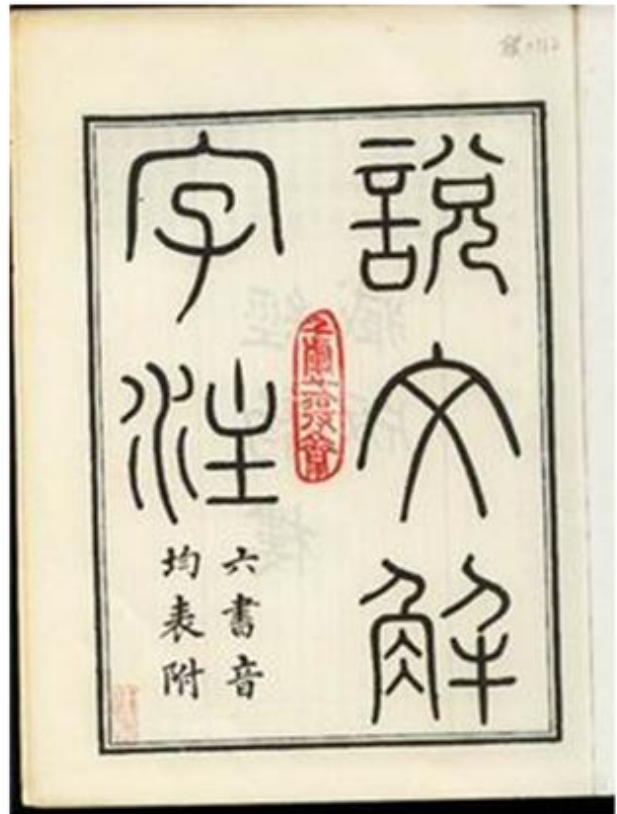 說文解
字注
六書音
均表附